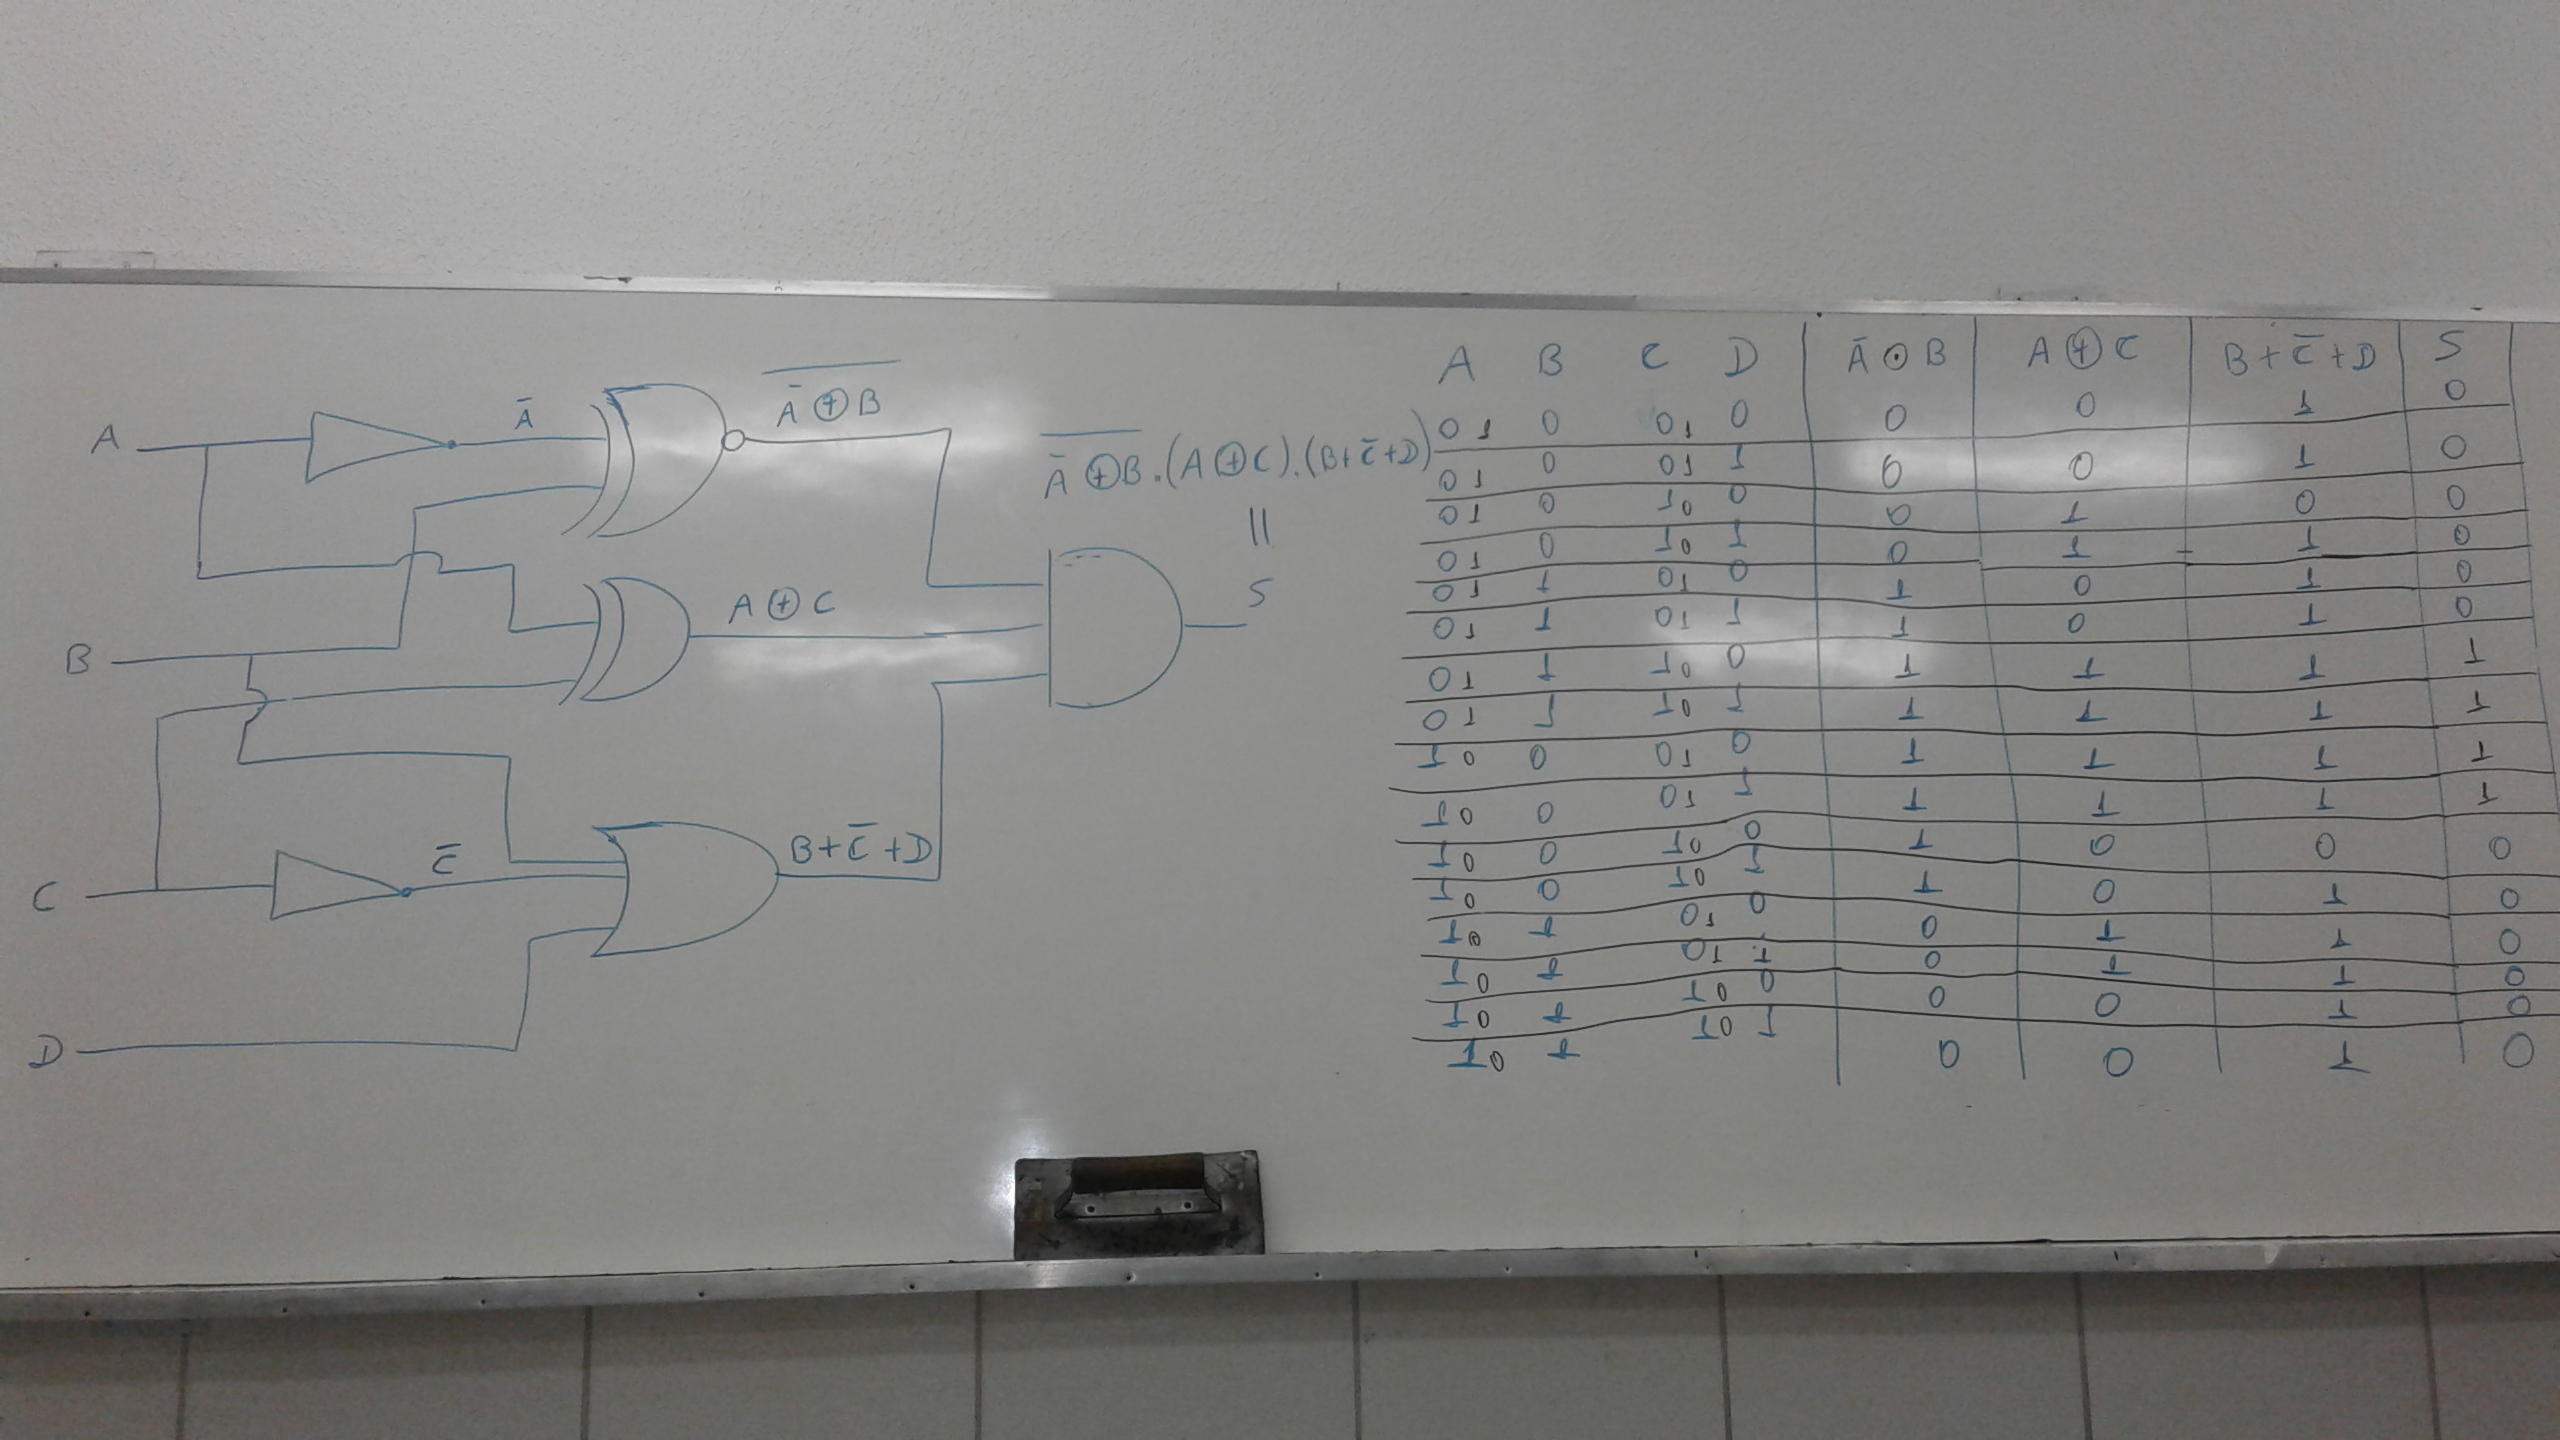 A
Ā
\overline{Ā ⊕ B}
\overline{Ā ⊕ B} . (A ⊕ C) . (B + C̄ + D)
||
S
A ⊕ C
B
C
C̄
B + C̄ + D
D
A B C D Ā ⊙ B A ⊕ C B + C̄ + D S
0 1 0 0 1 0 0 0 1 0
0 1 0 0 1 1 0 0 1 0
0 1 0 1 0 0 0 1 0 0
0 1 0 1 0 1 0 1 1 0
0 1 1 0 1 0 1 0 1 0
0 1 1 0 1 1 1 0 1 0
0 1 1 1 0 0 1 1 1 1
0 1 1 1 0 1 1 1 1 1
1 0 0 0 1 0 1 1 1 1
1 0 0 0 1 1 1 1 1 1
1 0 0 1 0 0 1 0 0 0
1 0 0 1 0 1 1 0 1 0
1 0 1 0 1 0 0 1 1 0
1 0 1 0 1 1 0 1 1 0
1 0 1 1 0 0 0 0 1 0
1 0 1 1 0 1 0 0 1 0